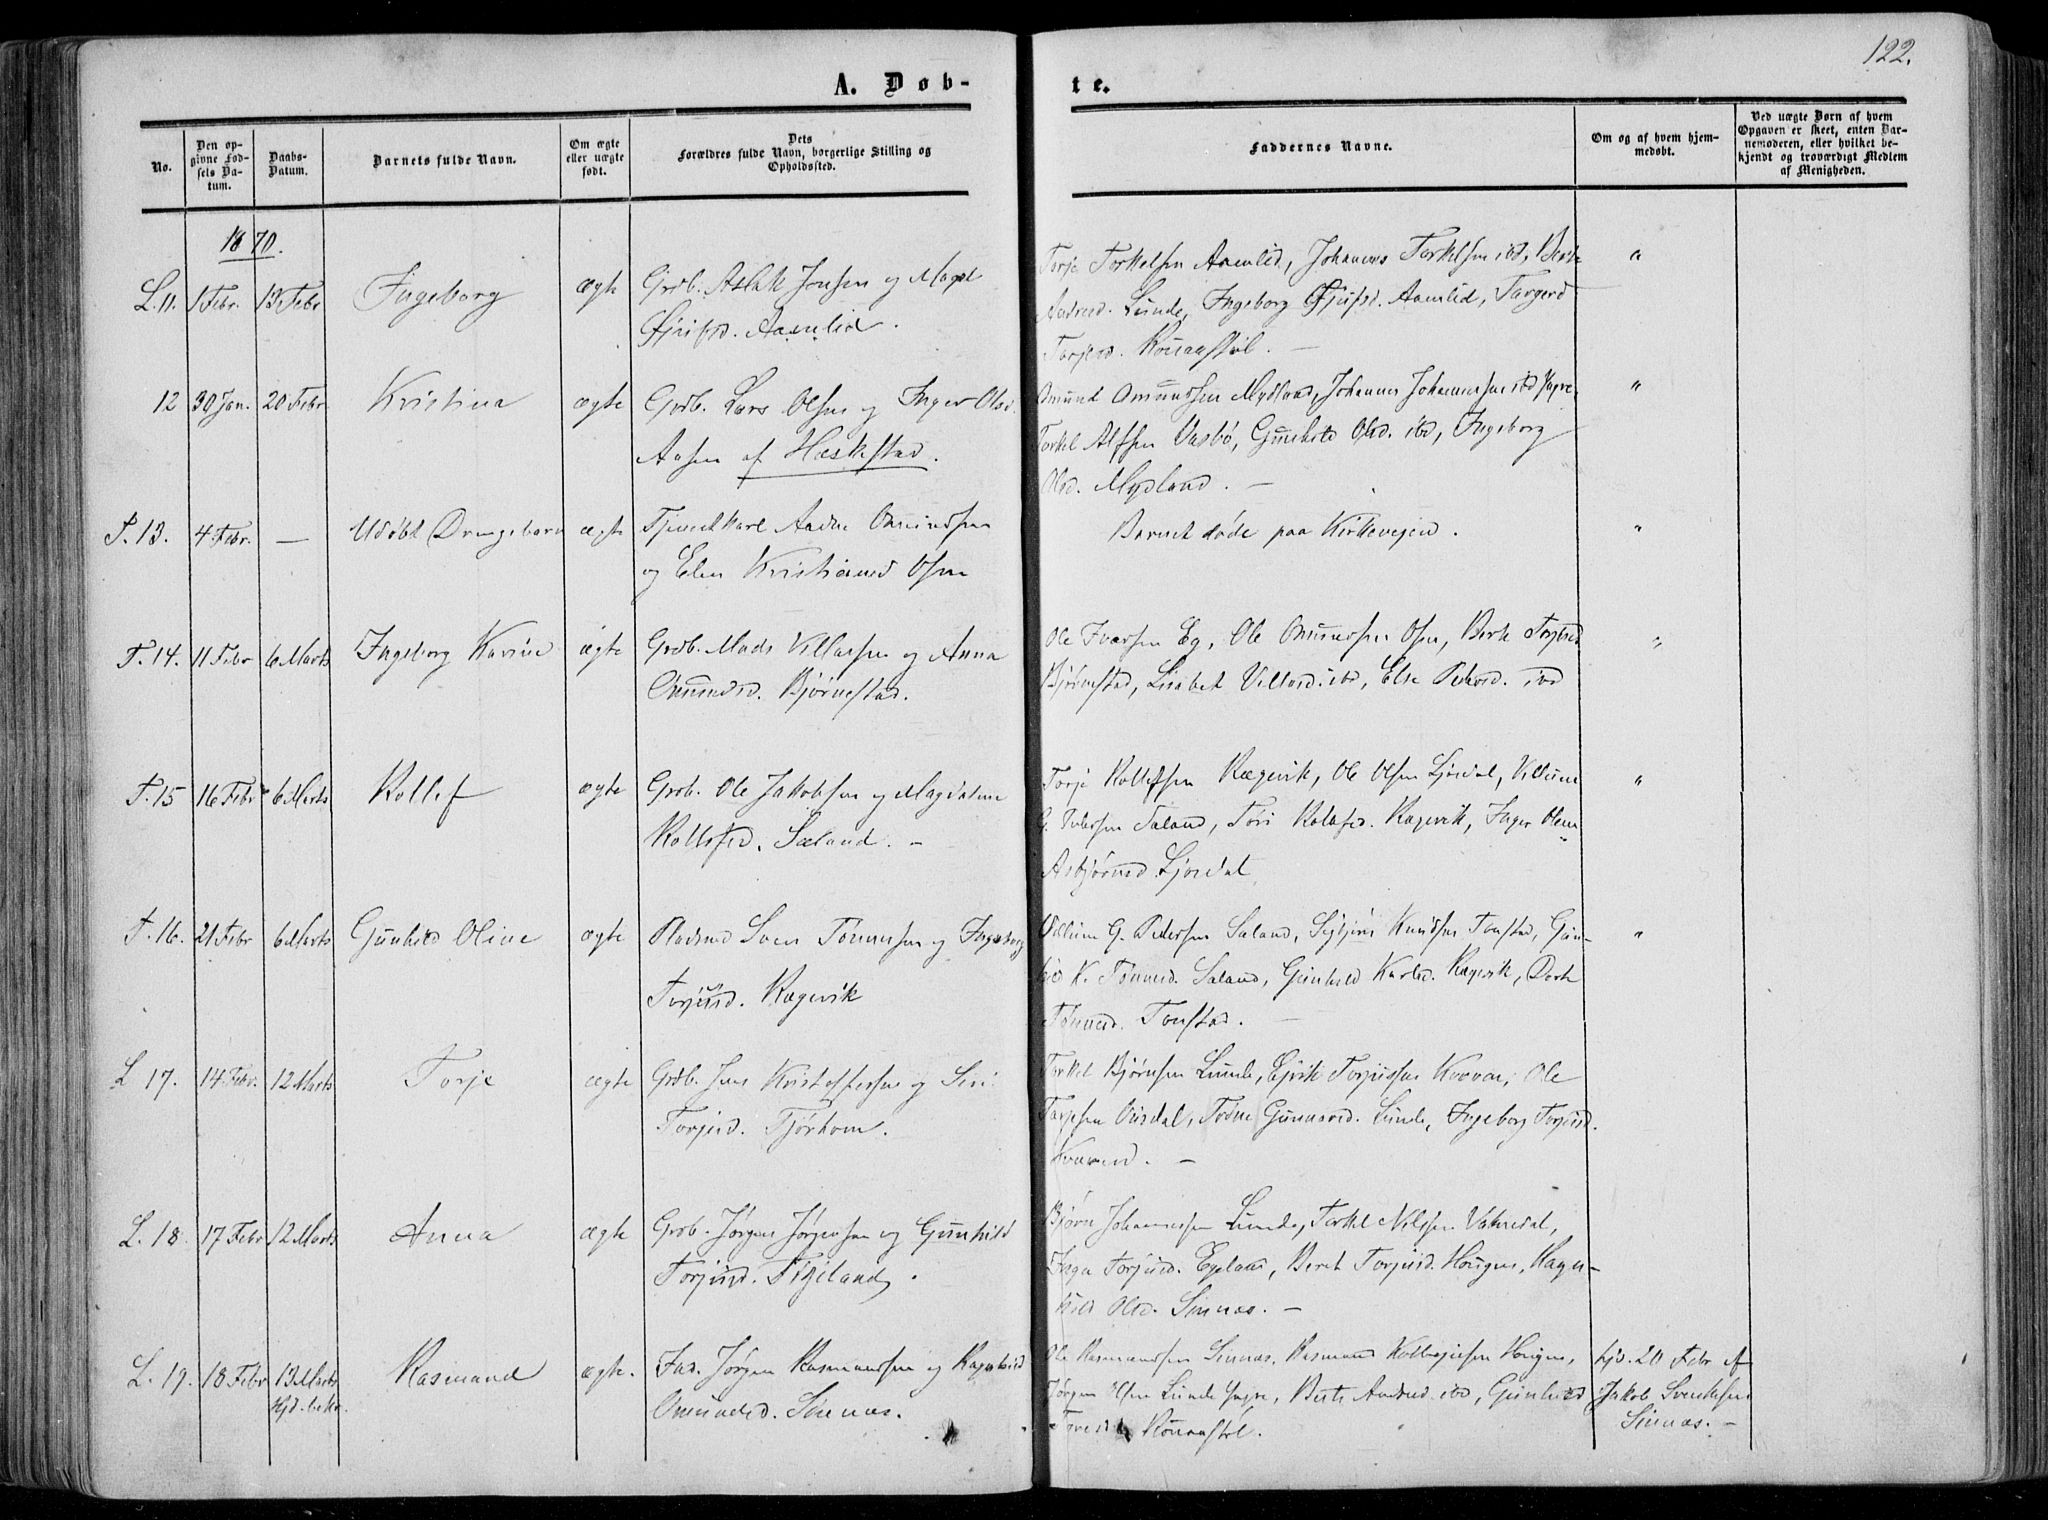 122.
A. Døb-
te.
No.
Den opgivne Fødsels Datum.
Daabs-Datum.
Barnets fulde Navn.
Om ægte eller uægte født.
Dets Forældres fulde Navn, borgerlige Stilling og Opholdssted.
Faddernes Navne.
Om og af hvem hjemmedøbt.
Ved uægte Børn af hvem Opgaven er skeet, enten Barnemoderen, eller hvilket bekjendt og troværdigt Medlem af Menigheden.
1870.
L. 11. 1 Febr. 13 Febr Ingeborg ægte Grdb. Aslak Jonsen og Magl
Gjrufsd. Aamlid.
Torje Torkelsen Aamlid, Johannes Torkelsen ibd, Berte "
Andresd. Lunde, Ingeborg Gjrufsd. Aamlid, Targerd
Torjesd. Rouanstøl. —
12 30 Jan. 20 Febr Kristina ægte Grdb. Lars Olsen og Inger Olsd.
Aasen af Hæskestad.
Omund Omundsen Mydland, Johannes Johannessen ibd Yngre, "
Torkel Alfsen Vasbø, Gunhild Olsd. ibd, Ingeborg
Olsd. Mydland. —
T. 13. 4 Febr. — Udøbt Drengebarn ægte Tjenestkarl Aadne Omundsen
og Elen Kristiansd Osen
Barnet døde paa Kirkeveien. "
T. 14. 11 Febr 6 Marts Ingeborg Karine ægte Grdb. Mads Villassen og Anna
Omundsd. Bjørnestad.
Ole Ivarsen Eg, Ole Omundsen Osen, Berte Torjesd "
Bjørnestad, Lisabet Villasd. ibd, Else Pedersd. ibd
T. 15 16 Febr 6 Marts Rollef ægte Grdb. Ole Jakobsen og Magdalene
Rollefsd. Sæland. —
Torje Rollefsen Rægevik, Ole Olsen Ljosdal, Villum "
G. Pedersen Saland, Tori Rolefsd. Rægevik, Inger Olene
Asbjørnsd Ljosdal
T. 16. 21 Febr 6 Marts Gunhild Oline ægte Pladsmd Sven Tønnesen og Ingeborg
Torjusd. Rægevik
Villum G. Pedersen Saland, Sigbjørn Knudsen Tonstad, Gun- "
hild K. Tønnesd. Saland, Gunhild Karlsd. Rægevik, Dorte
Tønnesd. Tonstad. —
L 17. 14 Febr. 12 Marts Torje ægte Grdb. Jens Kristoffersen og Siri
Torjusd. Tjørhom.
Torkel Bjørnsen Lunde, Eirik Torjussen Kvæven, Ole
Torjesen Ousdal, Tone Gunnarsd. Lunde, Ingeborg Torjusd.
Kvæven. —
L. 18. 17 Febr 12 Marts Anna ægte Grdb. Jørgen Jørgensen og Gunhild
Torjusd. Figeland.
Bjørn Johannessen Lunde, Torkel Nilsen Vatnedal,
Inga Torjusd. Egeland, Beret Torjusd. Hougen, Ragn-
hild Olsd. Sinnes. —
L. 19. 18 Febr 13 Marts Rasmand ægte. Fad. Jørgen Rasmandsen og Ragnhild
Hjd. bekr. Omundsd. Sinnes.
Ole Rasmandsen Sinnes, Rasmand Kolbeinsen Hougen, hjd. 20 Febr af
Jørgen Olsen Lunde Yngre, Berte Andresd ibd, Gunhild Jakob Svendsen
Torjesd. Rouanstøl. Sinnes. —